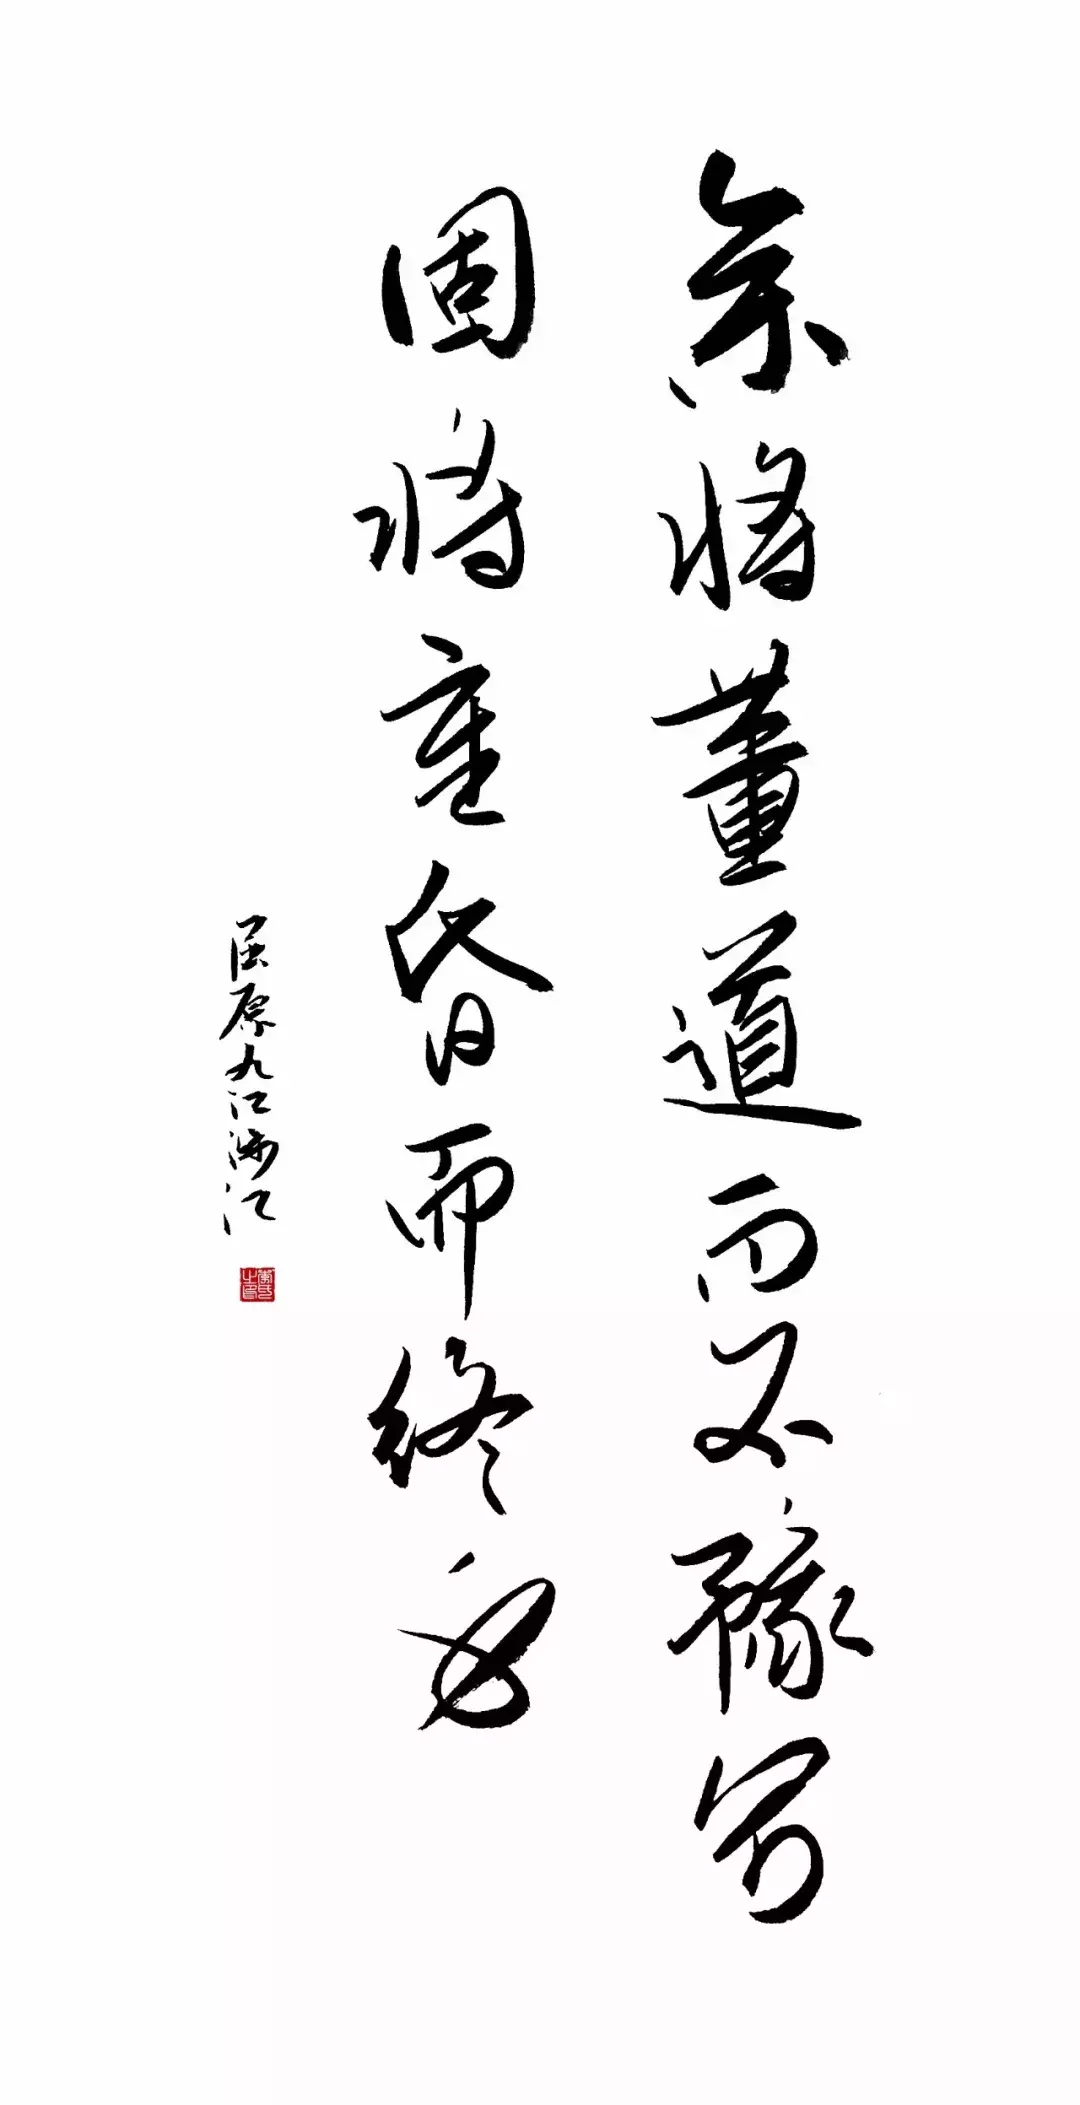 余将董道而不豫兮
固将重昏而终身
屈原九江涉江